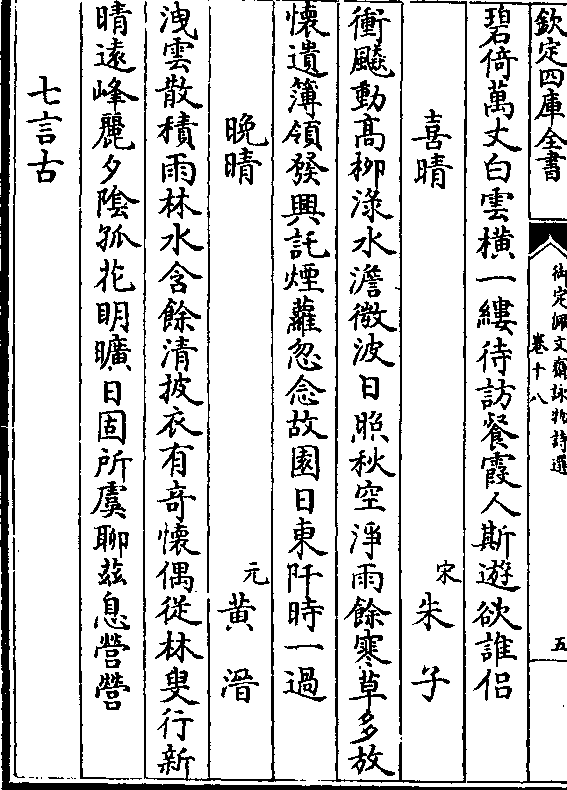 欽定四庫全書
御定佩文齋詠物詩選
卷十八
五
碧倚萬丈白雲橫一縷待訪餐霞人斯遊欲誰侶
喜晴 宋 朱子
衝飈動高柳淥水澹微波日照秋空淨雨餘寒草多放
懷遺簿領發興託煙蘿忽念故園日東阡時一過
晚晴 元 黄溍
洩雲散積雨林水含餘清披衣有竒懷偶從林叟行新
晴遠峰麗夕陰孤花明曠日固所虞聊兹息營營
七言古